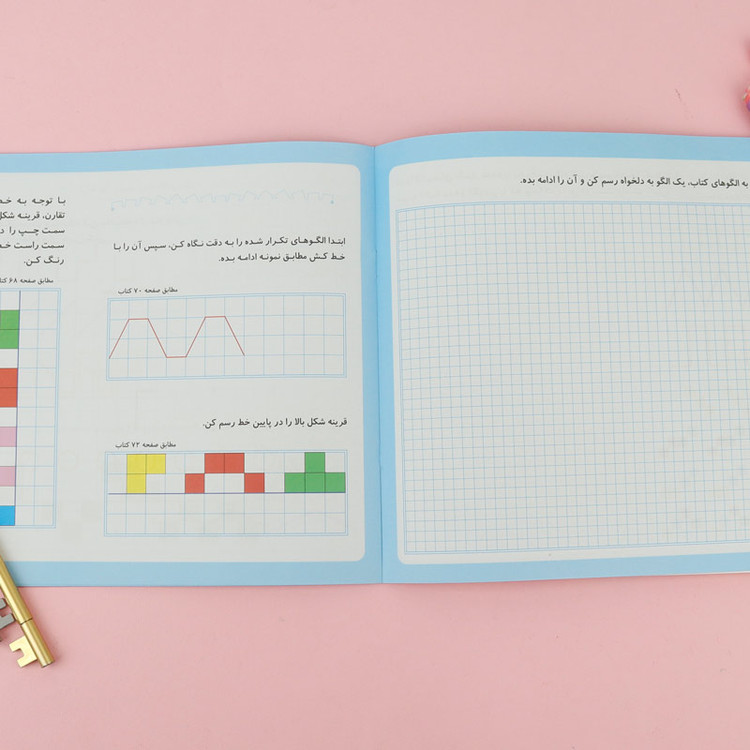 به الگوهای کتاب، یک الگو به دلخواه رسم کن و آن را ادامه بده.
ابتدا الگوهای تکرار شده را به دقت نگاه کن، سپس آن را با
خط کش مطابق نمونه ادامه بده.
مطابق صفحه ۷۰ کتاب
قرینه شکل بالا را در پایین خط رسم کن.
مطابق صفحه ۷۲ کتاب
با توجه به خط
تقارن، قرینه شکل
سمت چپ را د
سمت راست خط
رنگ کن.
مطابق صفحه ۶۸ کتا